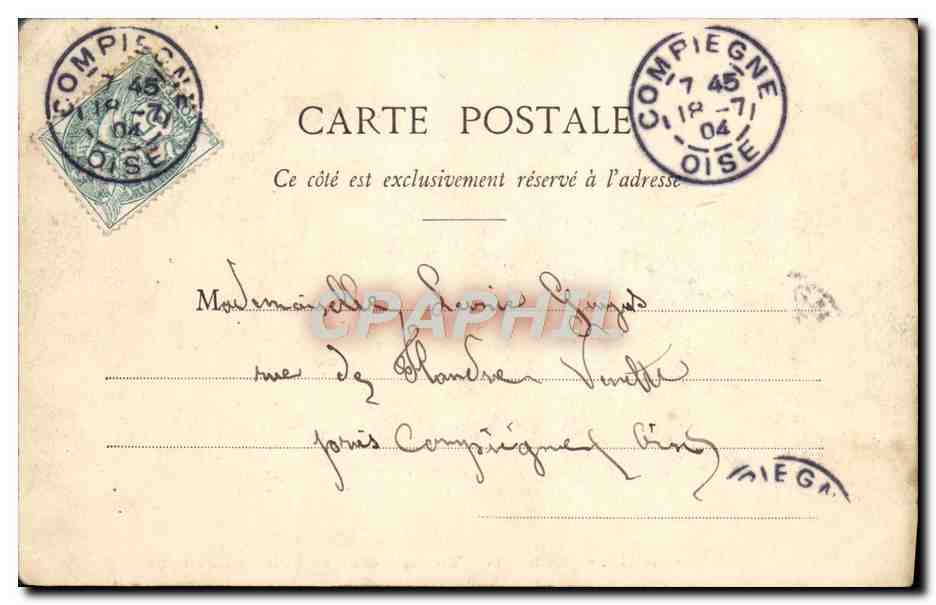 COMPIEGNE
7 45
18 -7
04
OISE
COMPIEGNE
7 45
18 -7
04
OISE
CARTE POSTALE
Ce côté est exclusivement réservé à l'adresse
Mademoiselle
CPAPHIL
rue de Flandre Venette
près Compiègne Oise
PIEGN